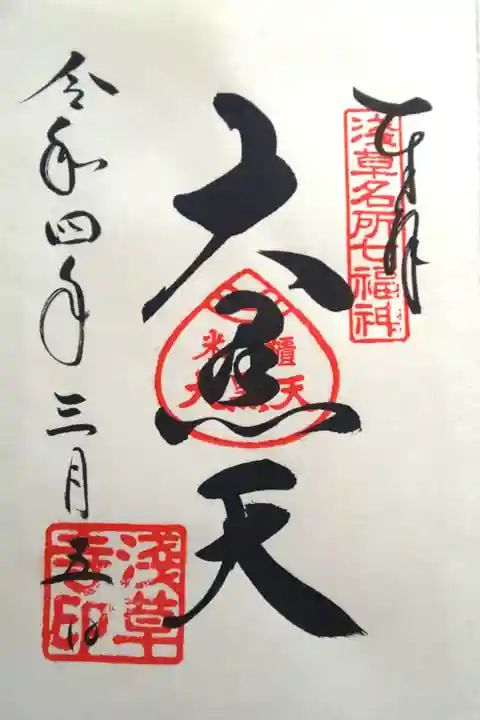 奉拝
浅草名所七福神
大黒天
米櫃
大黒天
令和四年三月五日
浅草寺印